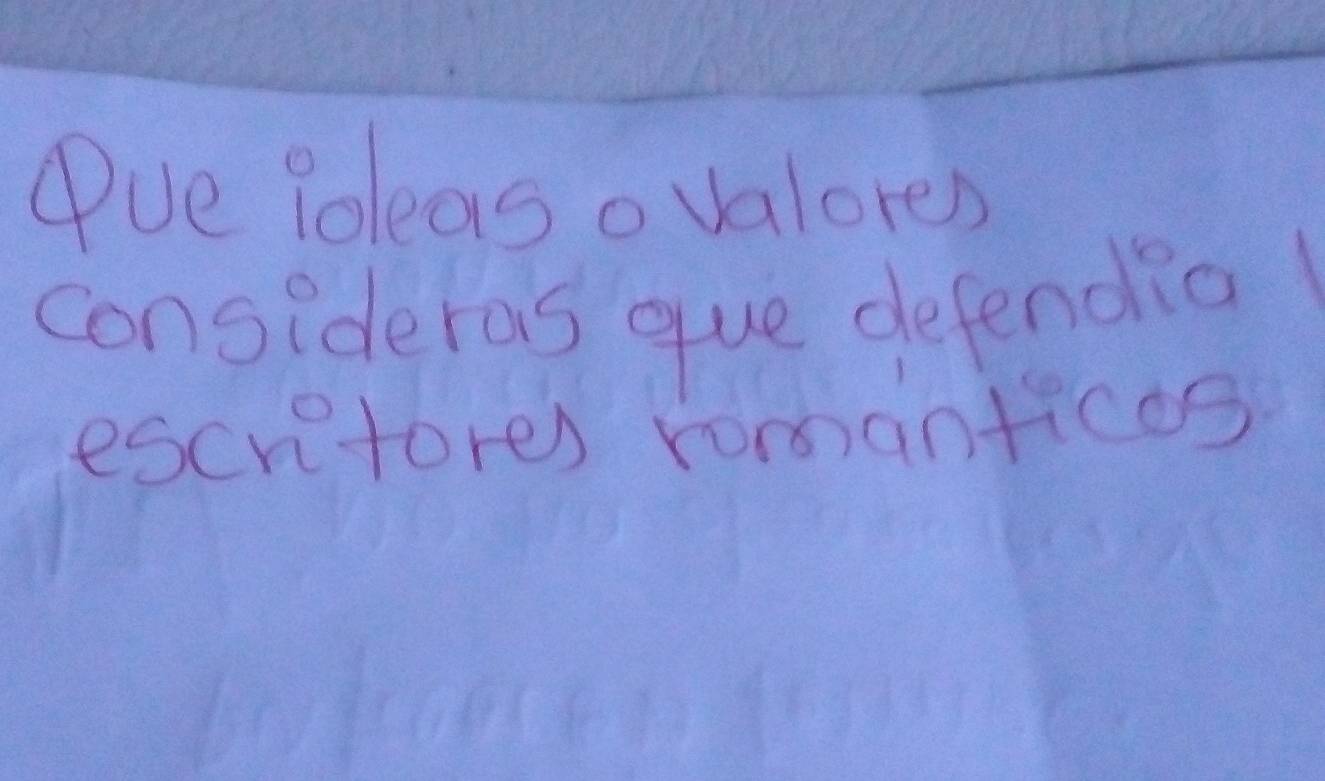 Que ideas o valores
consideras que defendia
escritores románticos